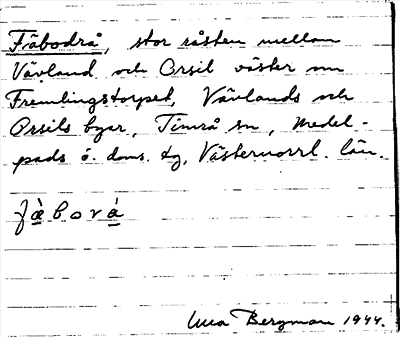 Fäbodrå, stor råsten mellan
Vävland och Orsil väster om
Fremlingstorpet, Vävlands och
Orsils byar, Timrå sn, Medel-
pads ö. doms. tg, Västernorrl. län.
fàbová
Bergman 1944.